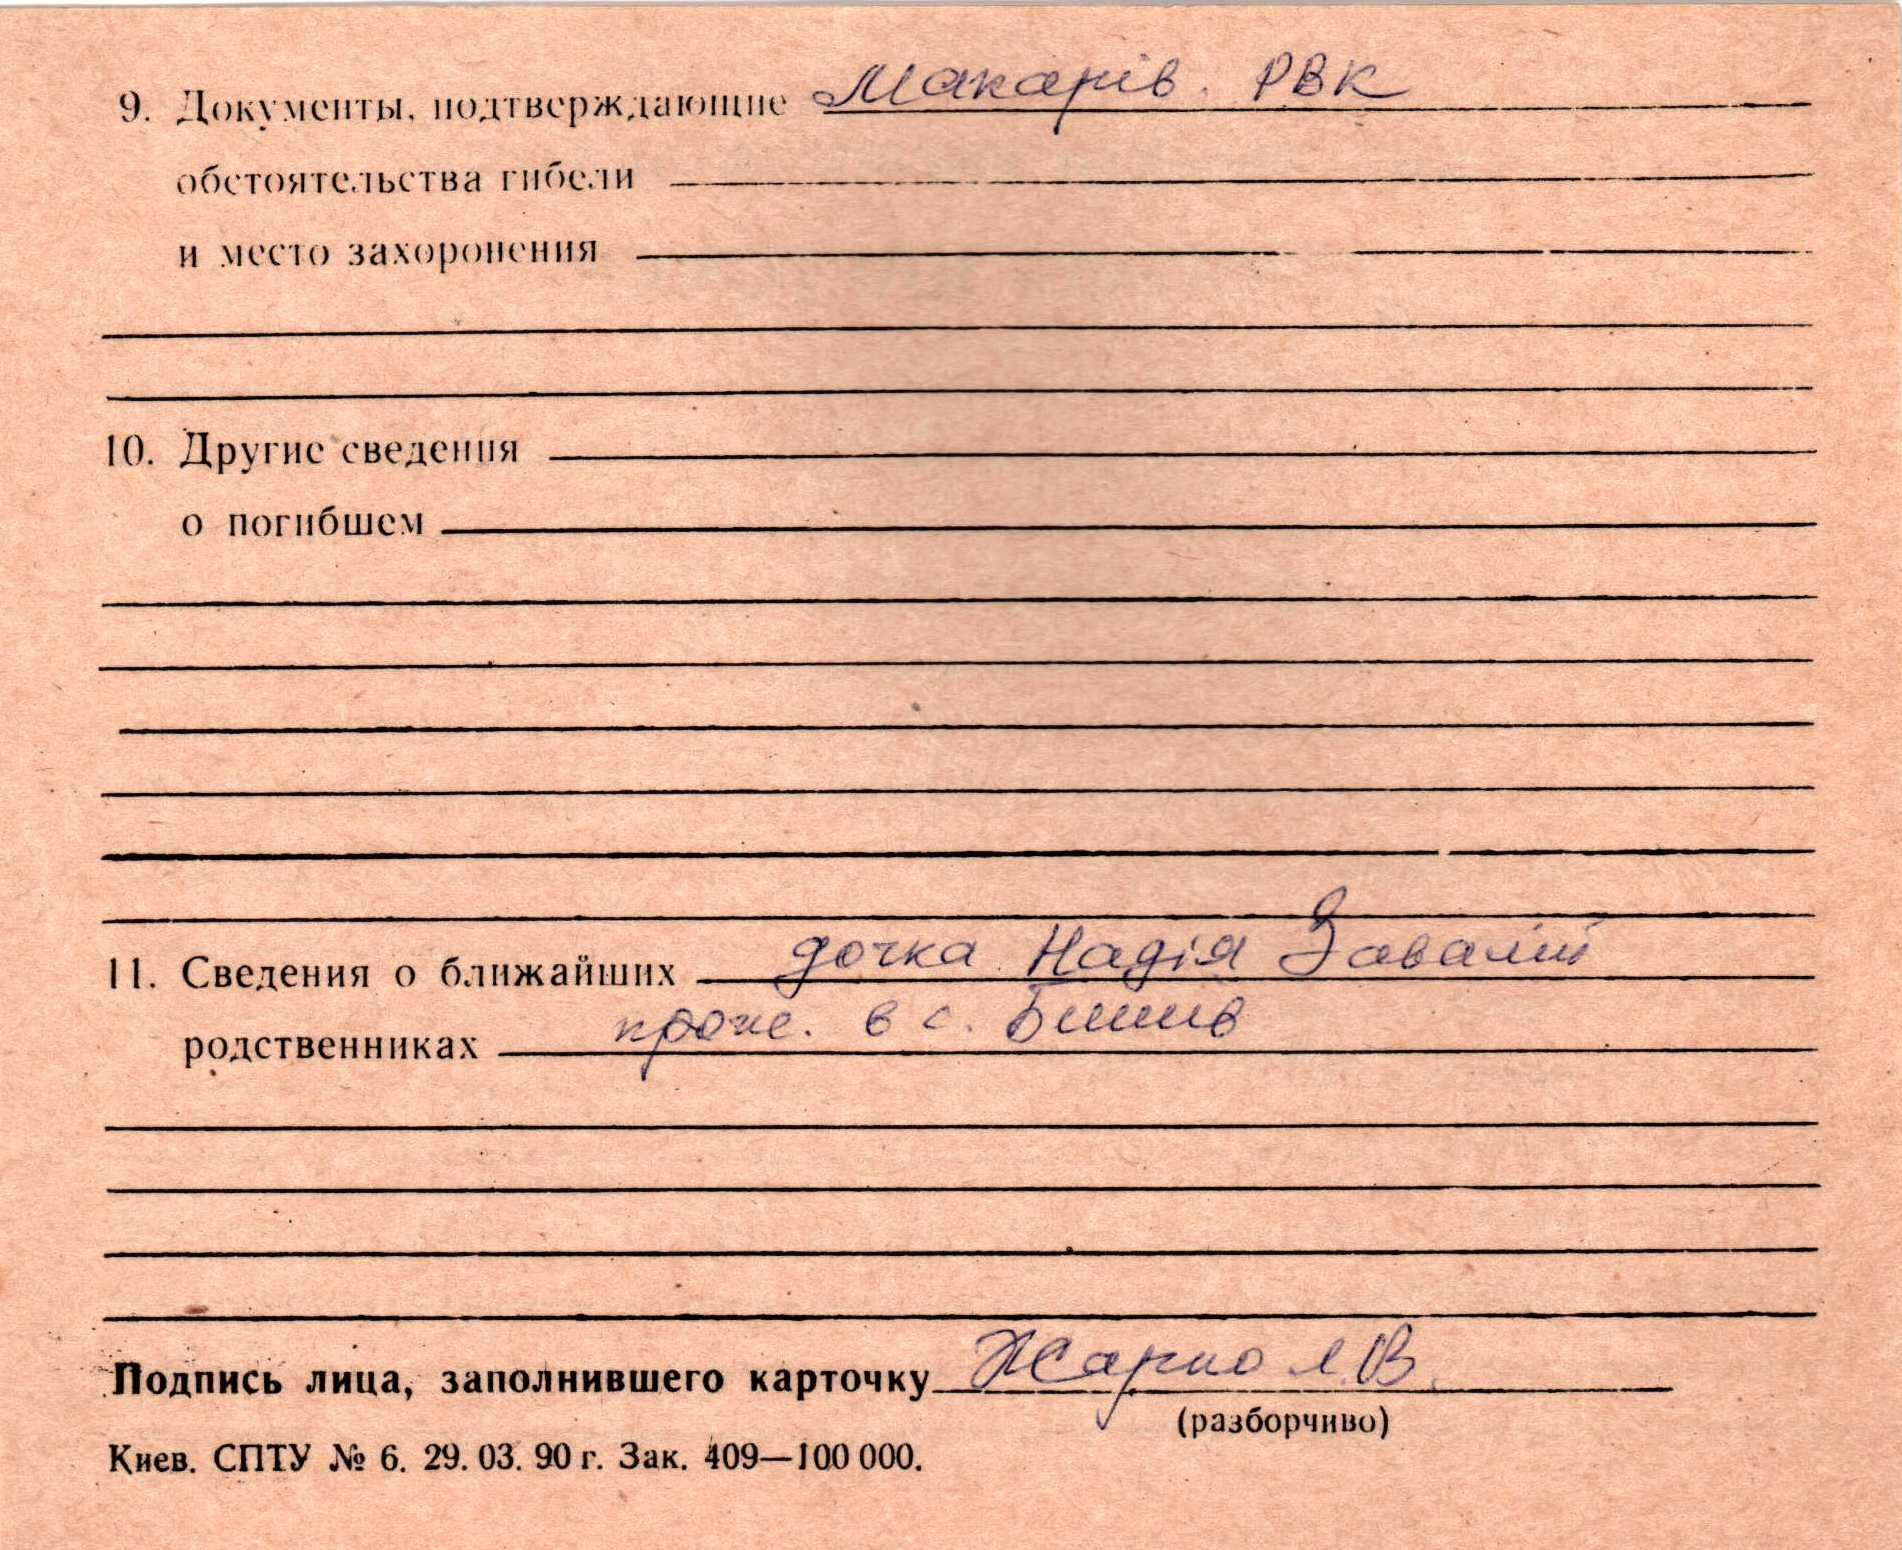 9. Документы, подтверждающие Макарів. РВК
обстоятельства гибели
и место захоронения
10. Другие сведения
о погибшем
11. Сведения о ближайших дочка Надія Завалій
родственниках прож. в с. Бишів
Подпись лица, заполнившего карточку Жарко Л.В.
(разборчиво)
Киев. СПТУ № 6. 29. 03. 90 г. Зак. 409—100 000.